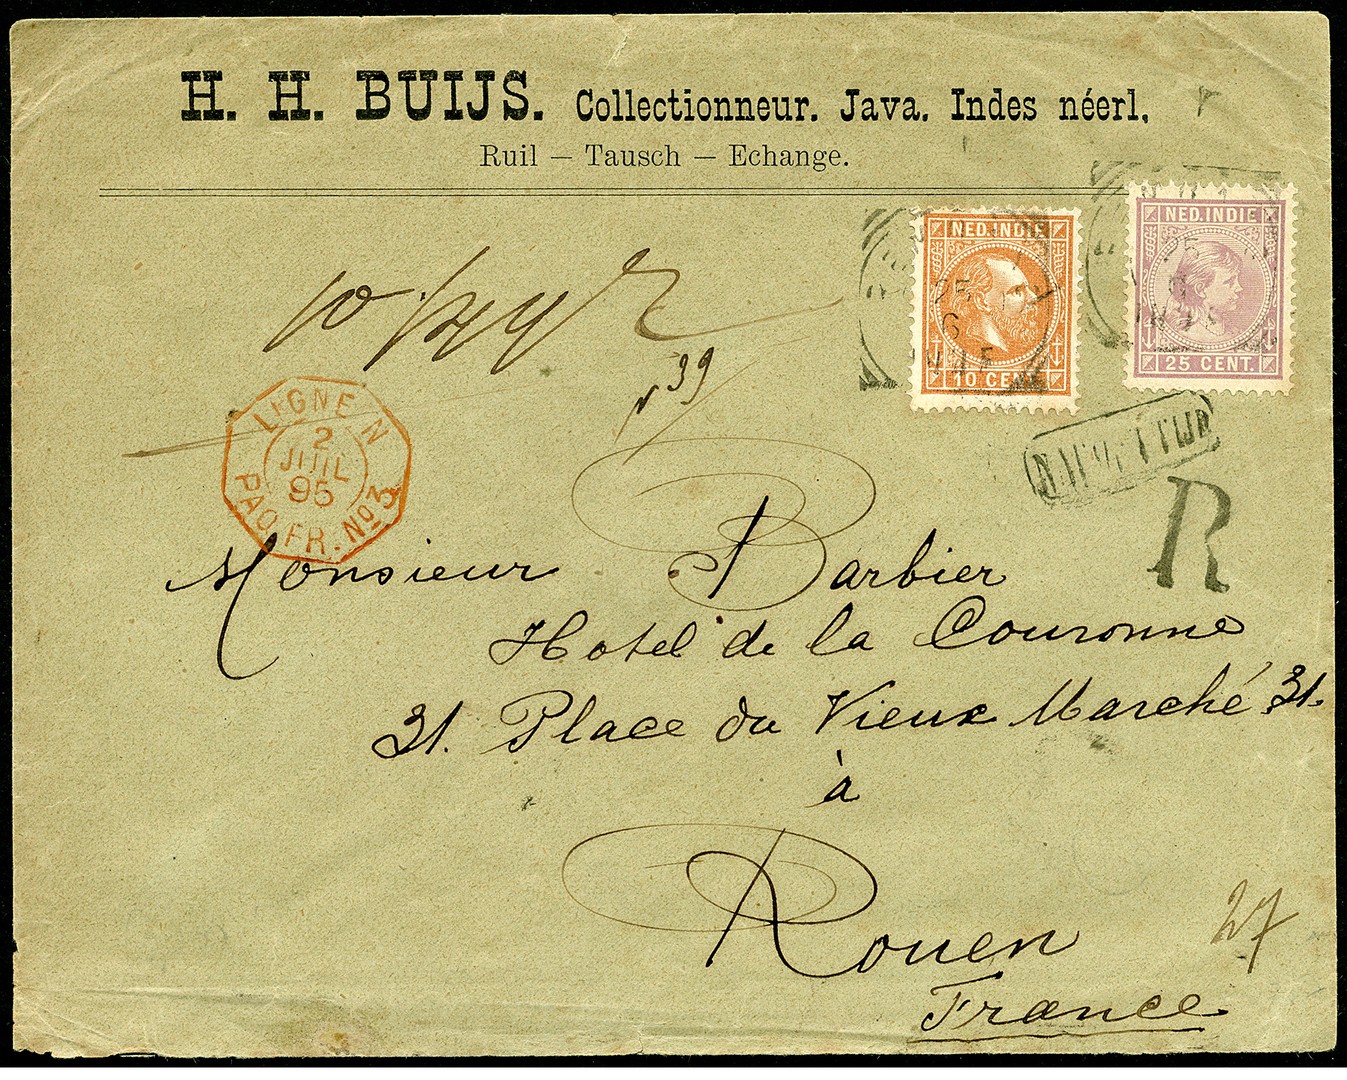 H. H. BUIJS. Collectionneur. Java. Indes néerl.
Ruil — Tausch — Echange.
NED. INDIE
10 CENT.
NED. INDIE
25 CENT.
25
6
25
№ 39
LIGNE N
2
JUIL
95
PAQ. FR. No 3
NA POSTTIJD
R
Monsieur Barbier
Hotel de la Couronne
31. Place du Vieux Marché 31.
à
Rouen
France
27